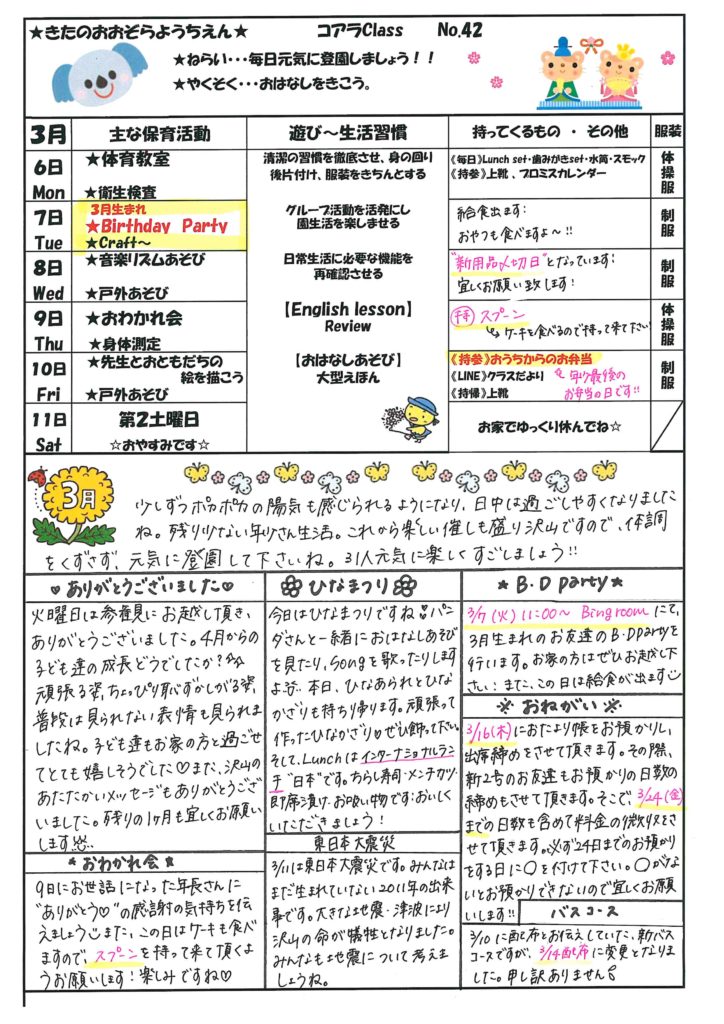 ★きたのおおぞらようちえん★ コアラClass No.42
★ねらい・・・毎日元気に登園しましょう！！
★やくそく・・・おはなしをきこう。
3月 主な保育活動 遊び～生活習慣 持ってくるもの ・ その他 服装
6日 Mon
★体育教室
★衛生検査
清潔の習慣を徹底させ、身の回り
後片付け、服装をきちんとする
《毎日》Lunch set・歯みがきset・水筒・スモック
《持参》上靴 、プロミスカレンダー
体操服
7日 Tue
3月生まれ
★Birthday Party
★Craft～
グループ活動を活発にし
園生活を楽しませる
給食出ます!
おやつも食べますよ～!!
制服
8日 Wed
★音楽リズムあそび
★戸外あそび
日常生活に必要な機能を
再確認させる
"新用品〆切日"となっています!
宜しくお願い致します!
制服
9日 Thu
★おわかれ会
★身体測定
【English lesson】
Review
スプーン
ケーキを食べるので持って来て下さい
体操服
10日 Fri
★先生とおともだちの
絵を描こう
★戸外あそび
【おはなしあそび】
大型えほん
《持参》おうちからのお弁当
《LINE》クラスだより
年少最後の
お弁当の日です!!
《持帰》上靴
制服
11日 Sat
第2土曜日
☆おやすみです☆
お家でゆっくり休んでね☆
3月
少しずつポカポカの陽気も感じられるようになり、日中は過ごしやすくなりました
ね。残り少ない年少さん生活。これから楽しい催しも盛り沢山ですので、体調
をくずさず、元気に登園して下さいね。31人元気に楽しくすごしましょう!!
♡ありがとうございました♡
火曜日は参観にお越し頂き、
ありがとうございました。4月からの
子ども達の成長どうでしたか?
頑張る姿、ちょっぴり恥ずかしがる姿、
普段は見られない表情も見られま
したね。子ども達もお家の方と過ごせ
てとても嬉しそうでした♡また、沢山の
あたたかいメッセージもありがとうござ
いました。残りの1ヶ月も宜しくお願い
します
★おわかれ会★
9日にお世話になった年長さんに
"ありがとう♡"の感謝の気持ちを伝
えましょう また、この日はケーキも食べ
ますので、スプーンを持って来て頂くよ
うお願いします！楽しみですね♡
ひなまつり
今日はひなまつりですね パン
ダさんと一緒におはなしあそび
を見たり、songを歌ったりします
よ 本日、ひなあられとひな
かざりも持ち帰ります。頑張って
作ったひなかざり♡ぜひ飾って下さい
そして、Lunchはインターナショナルラン
チ"日本"です。ちらし寿司・メンチカツ・
即席漬け・お吸い物です!おいしく
いただきましょう！
東日本大震災
3/11は東日本大震災です。みんなは
まだ生まれていない2011年の出来
事です。大きな地震・津波により
沢山の命が犠牲となりました。
みんなも地震について考えま
しょうね。
★B.D party★
3/7(火)11:00～ Bingroomにて、
3月生まれのお友達のB・Dpartyを
行います。お家の方はぜひお越し下
さい！また、この日は給食が出ます
※おねがい※
3/16(木)におたより帳をお預かりし、
出席締めをさせて頂きます。その際、
新2号のお友達もお預かりの日数の
締めもさせて頂きます。そこで、3/24(金)
までの日数も含めて料金の徴収をさ
せて頂きます。必ず24日までのお預かり
をする日に○を付けて下さい。○がな
いとお預かりできないので宜しくお願
いします!!
バスコース
3/10に配布とお伝えしていた、新バス
コースですが、3/14配布に変更となりま
した。申し訳ありません